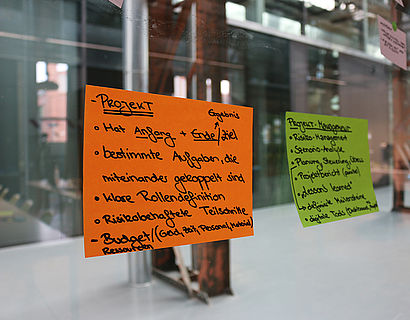 - PROJEKT
Ergebnis
• Hat Anfang + Ende/Ziel
• bestimmte Aufgaben, die
miteinander gekoppelt sind
• Klare Rollendefinition
• Risikobehaftete Teilschritte
- Budget/(Geld, Zeit, Personal, Material)
Ressourcen
Projekt-Management
• Risiko-Management
• Szenario-Analyse
• Planung, Steuerung,
• Projektbericht
• "lessons learned"
• digitale Tools